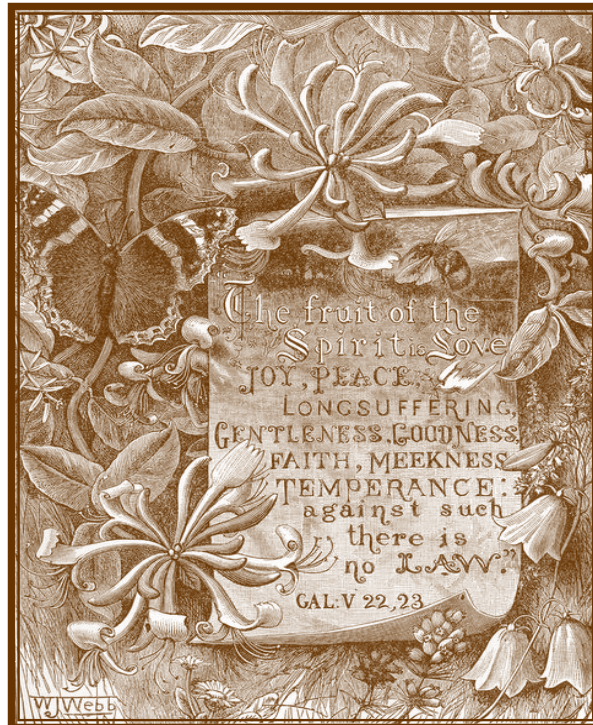 "The fruit of the
Spirit is Love
JOY, PEACE,
LONGSUFFERING,
GENTLENESS, GOODNESS,
FAITH, MEEKNESS
TEMPERANCE:
against such
there is
no LAW."
GAL: V 22, 23
W J Webb